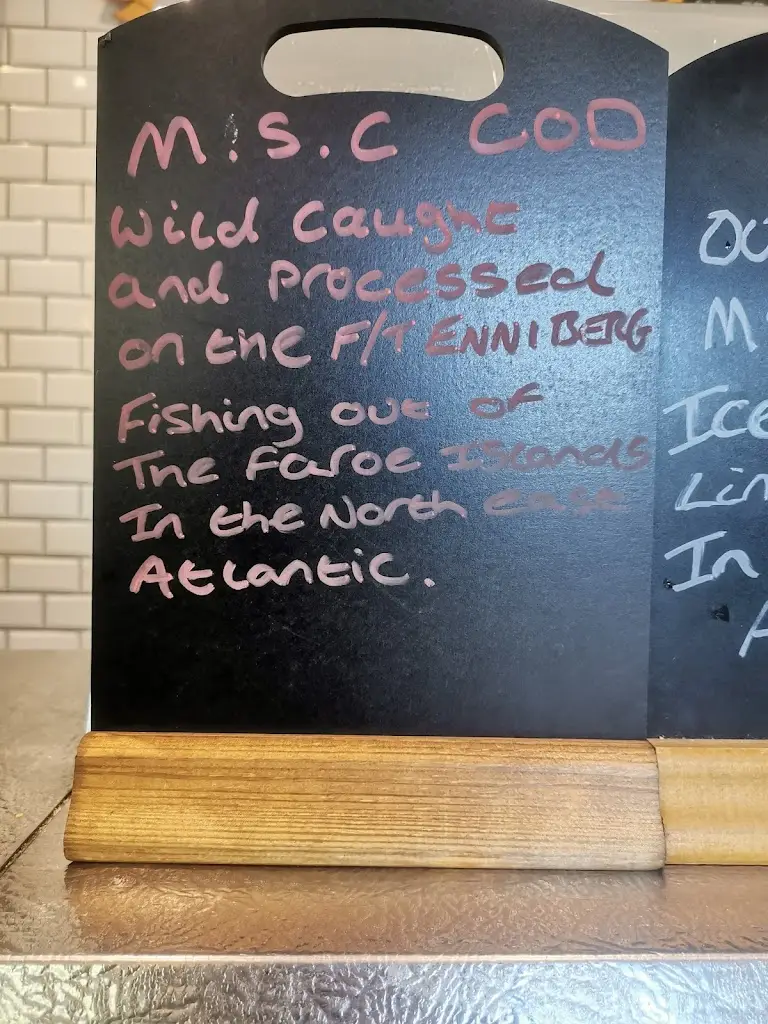 M.S.C COD
Wild Caught
and Processed
on the F/T ENNIBERG
Fishing out of
The Faroe Islands
In the North east
Atlantic.
In